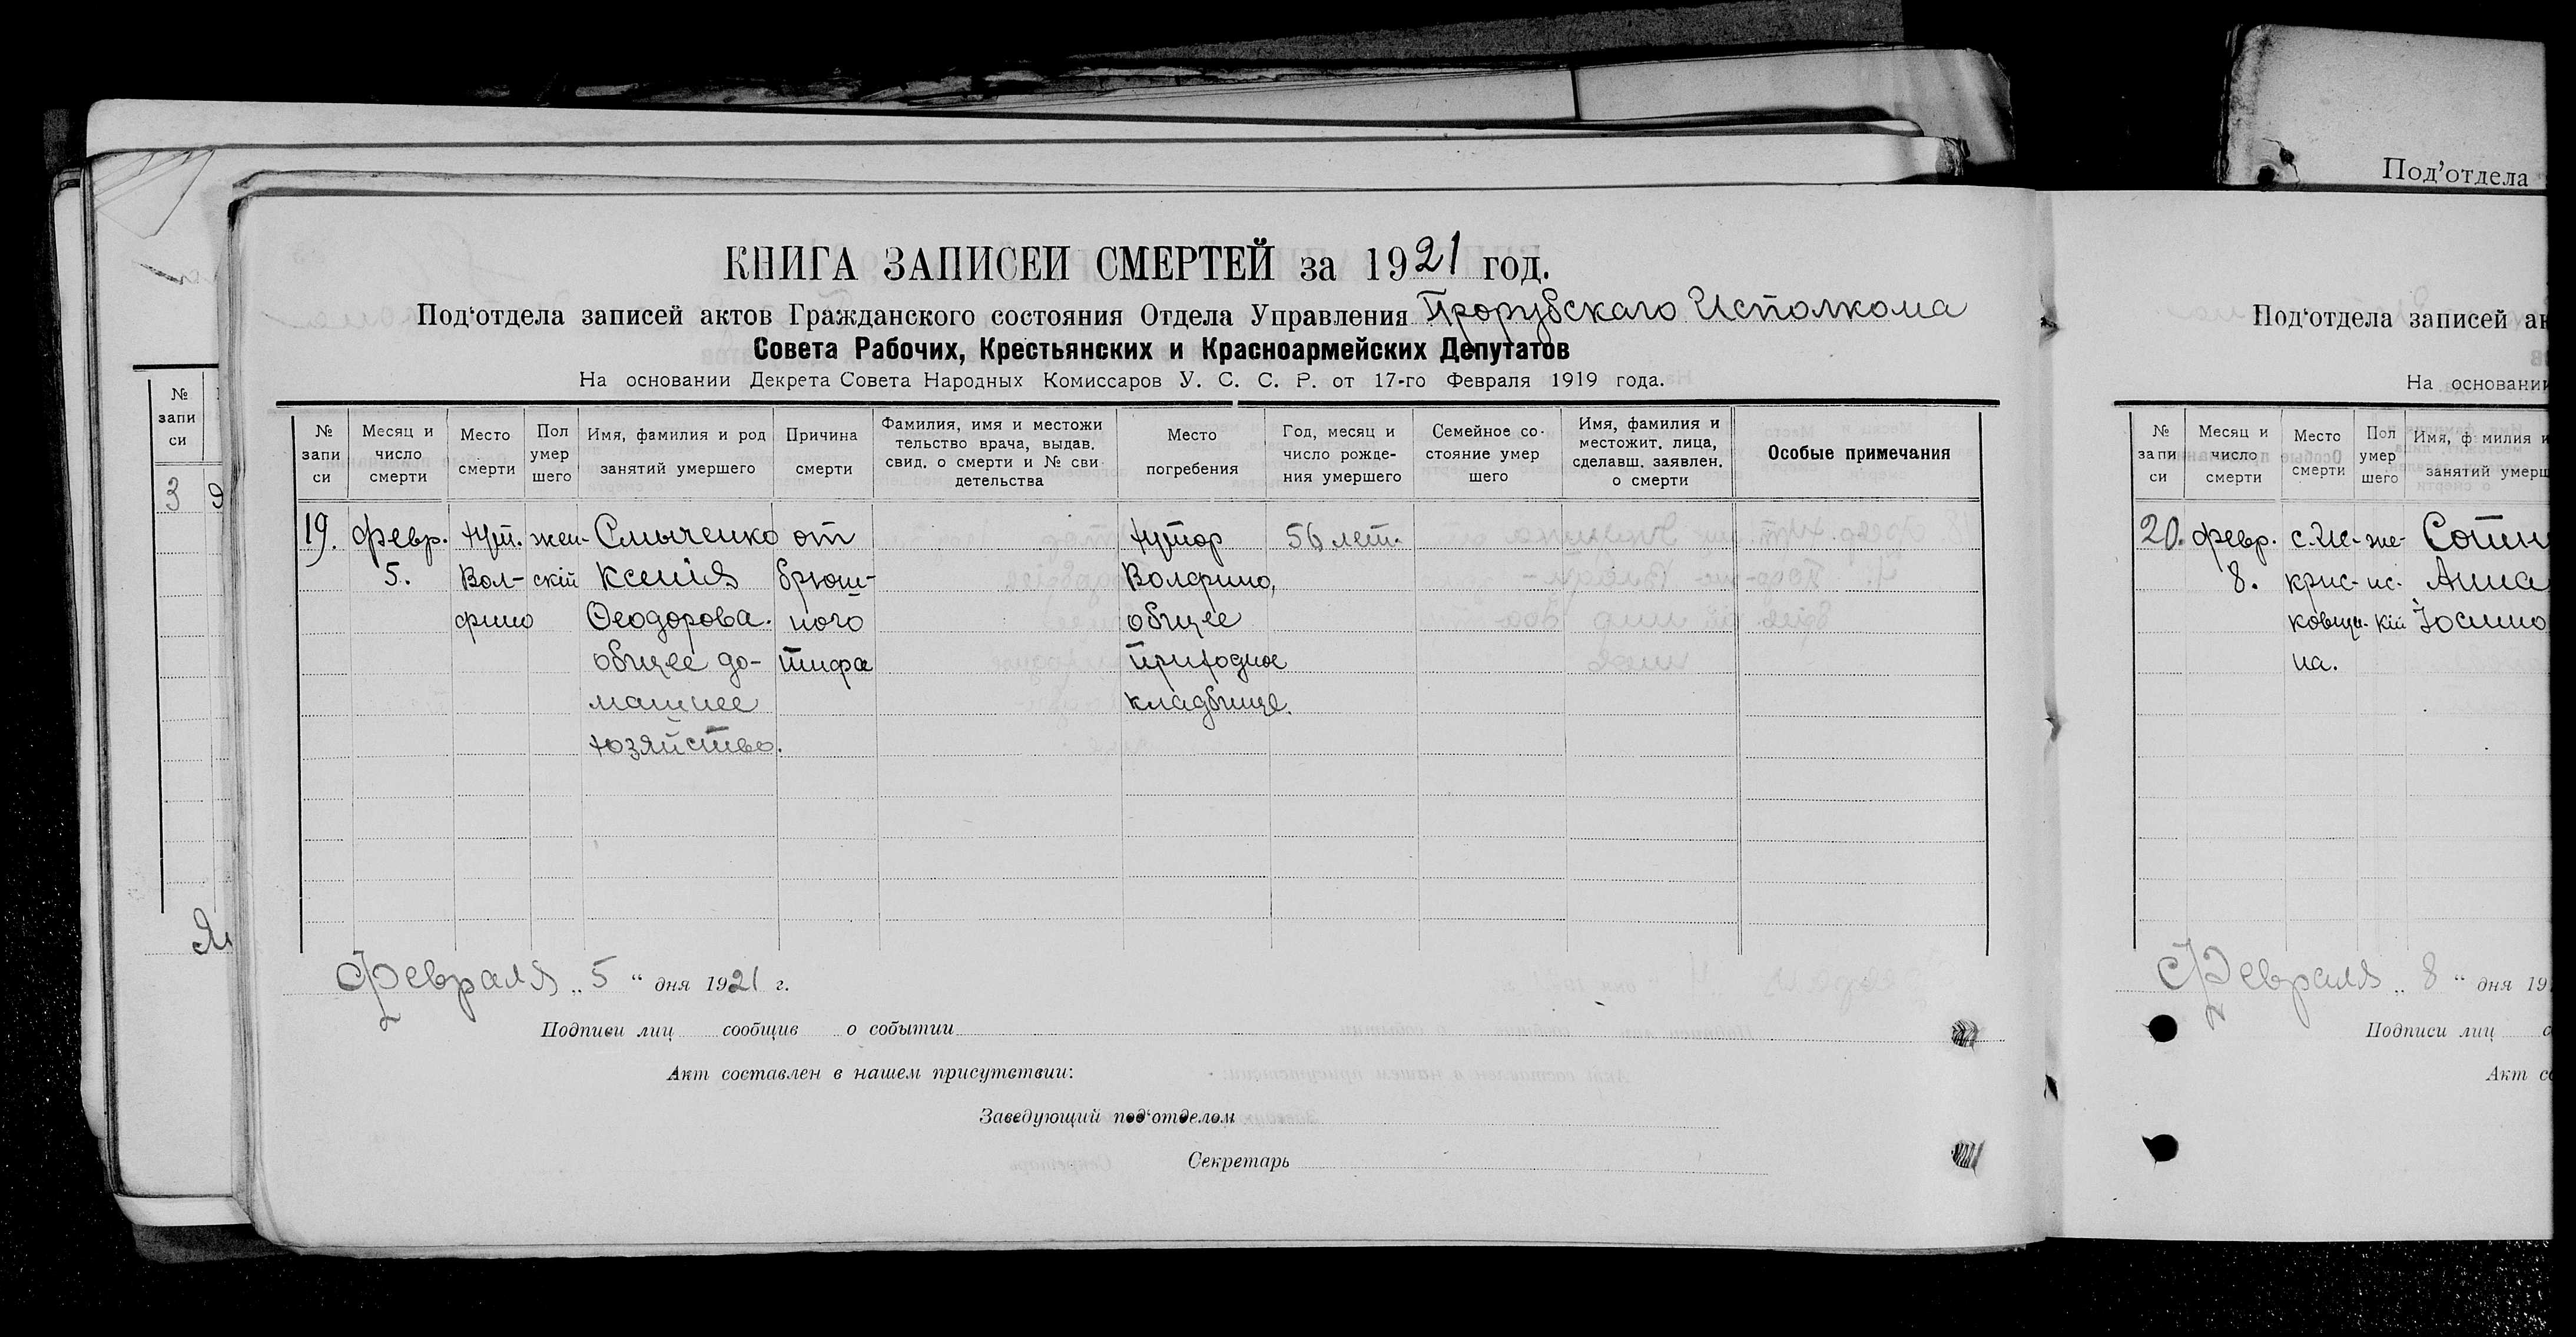 Под'отдела
КНИГА ЗАПИСЕЙ СМЕРТЕЙ за 1921 год.
Под'отдела записей актов Гражданского состояния Отдела Управления Прорубскаго Исполкома
Совета Рабочих, Крестьянских и Красноармейских Депутатов
На основании Декрета Совета Народных Комиссаров У. С. С. Р. от 17-го Февраля 1919 года.
№ запи си
Месяц и число смерти
Место смерти
Пол умер шего
Имя, фамилия и род занятий умершего
Причина смерти
Фамилия, имя и местожи тельство врача, выдав. свид. о смерти и № сви детельства
Место погребения
Год, месяц и число рожде- ния умершего
Семейное со- стояние умер шего
Имя, фамилия и местожит. лица, сделавш. заявлен. о смерти
Особые примечания
19.
февр.
5.
хут.
Вол-
фино
жен-
скій
Смыченко
Ксенія
Ѳеодорова.
общее до-
машнее
хозяйство.
от
брюш-
ного
тифа
хутор
Волфино,
общее
приходное
кладбище.
56 лет.
Февраля „ 5 “ дня 1921 г.
Подписи лиц сообщив о событии
Акт составлен в нашем присутствии:
Заведующий под'отделом
Секретарь
№
запи
си
3
Под'отдела записей ак
На основании
№ запи си
Месяц и число смерти
Место смерти
Пол умер шего
Имя, ф милия и
занятий умерш
20.
февр.
8.
с. Ис-
крис-
ковщи-
на.
же-
нс-
кій
Анна
Февраля „ 8 “ дня 19
Подписи лиц
Акт со